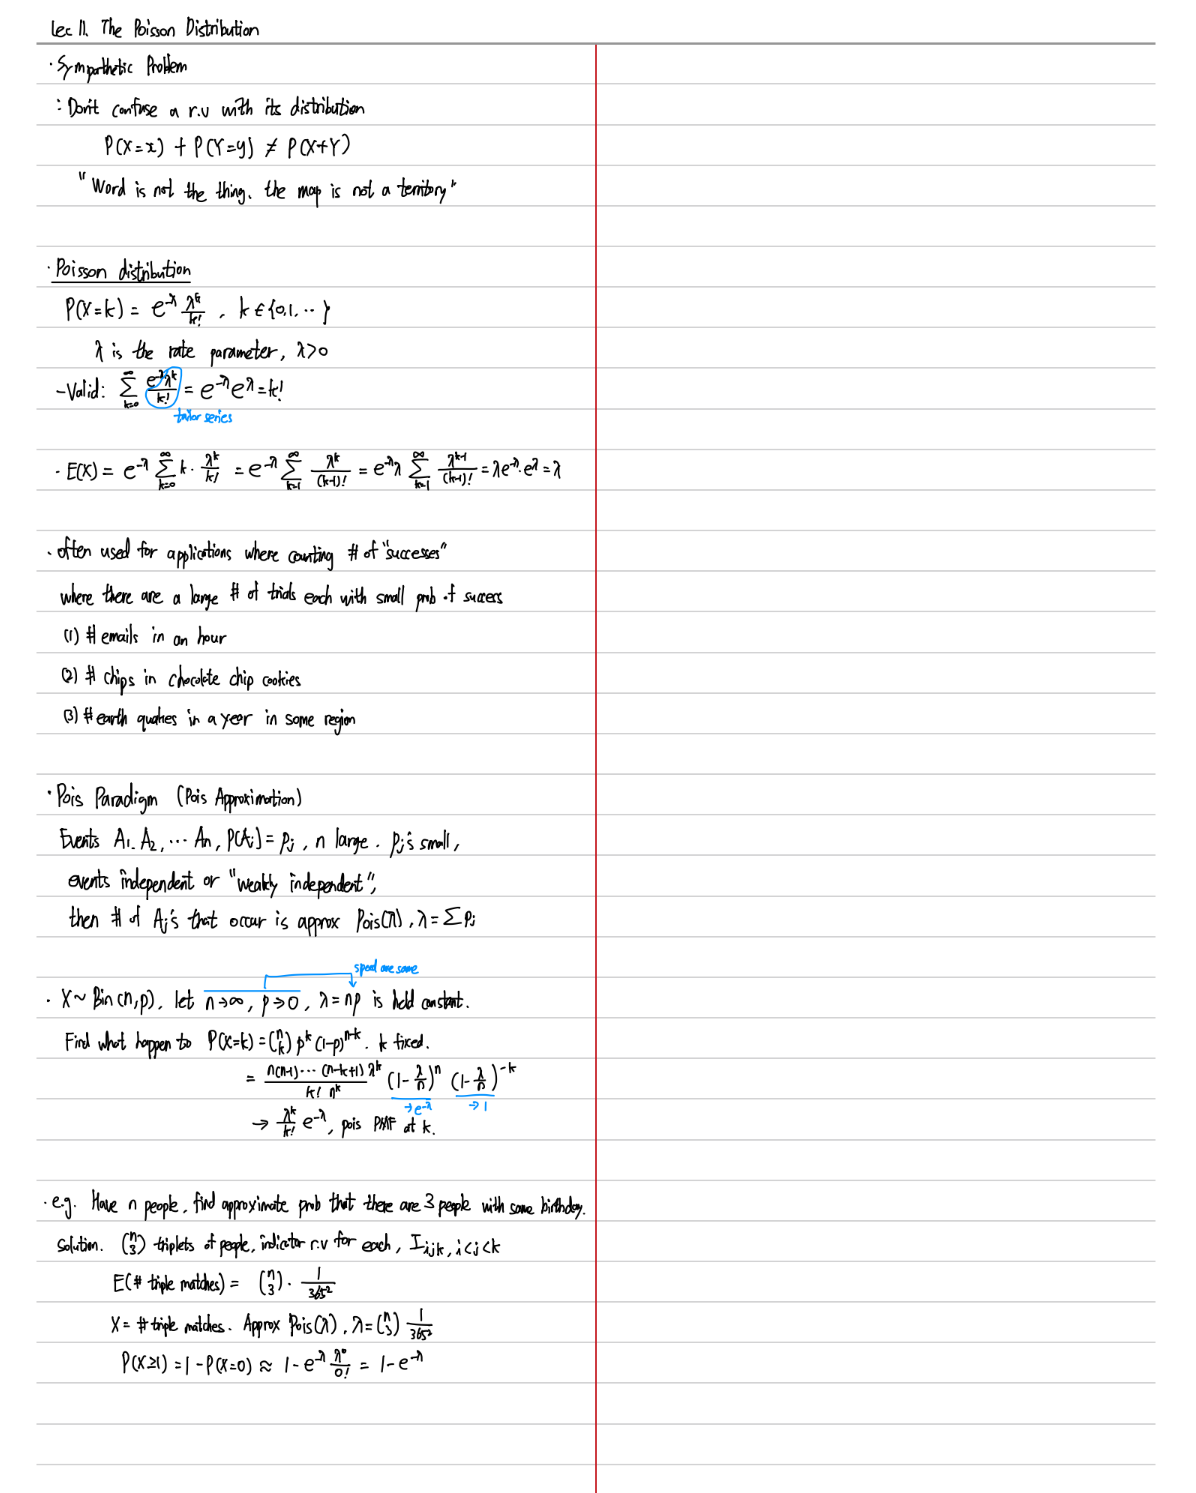 Lec 11. The Poisson Distribution
· Sympathetic Problem
: Don't confuse a r.v with its distribution
P(X=x) + P(Y=y) ≠ P(X+Y)
"Word is not the thing. the map is not a territory"
· Poisson distribution
P(X=k) = e^{-λ} λ^k/k! , k ∈ {0,1, ...}
λ is the rate parameter, λ>0
- Valid: ∑_{k=0}^{∞} e^{-λ}λ^k/k! = e^{-λ} e^{λ} = k!
tailor series
· E(X) = e^{-λ} ∑_{k=0}^{∞} k · λ^k/k! = e^{-λ} ∑_{k=1}^{∞} λ^k/(k-1)! = e^{-λ}λ ∑_{k=1}^{∞} λ^{k-1}/(k-1)! = λe^{-λ}·e^{λ} = λ
· often used for applications where counting # of "successes"
where there are a large # of trials each with small prob of success
(1) # emails in an hour
(2) # chips in chocolate chip cookies
(3) # earth quakes in a year in some region
· Pois Paradigm (Pois Approximation)
Events A₁, A₂, ... An, P(Aj) = Pj , n large . Pj's small,
events independent or "weakly independent",
then # of Aj's that occur is approx Pois(λ), λ = ∑ Pj
speed are same
· X ~ Bin(n,p), let n→∞, p→0, λ=np is held constant.
Find what happen to P(X=k) = (n k) p^k (1-p)^{n-k}. k fixed.
= n(n-1)···(n-k+1) λ^k / k! n^k (1-λ/n)^n (1-λ/n)^{-k}
→e^{-λ} →1
→ λ^k/k! e^{-λ}, pois PMF at k.
· e.g. Have n people, find approximate prob that there are 3 people with same birthday.
Solution. (n 3) triplets of people, indicator r.v for each, I_{ijk}, i<j<k
E(# triple matches) = (n 3) · 1/365²
X = # triple matches. Approx Pois(λ), λ = (n 3) 1/365²
P(X≥1) = 1 - P(X=0) ≈ 1 - e^{-λ} λ⁰/0! = 1 - e^{-λ}